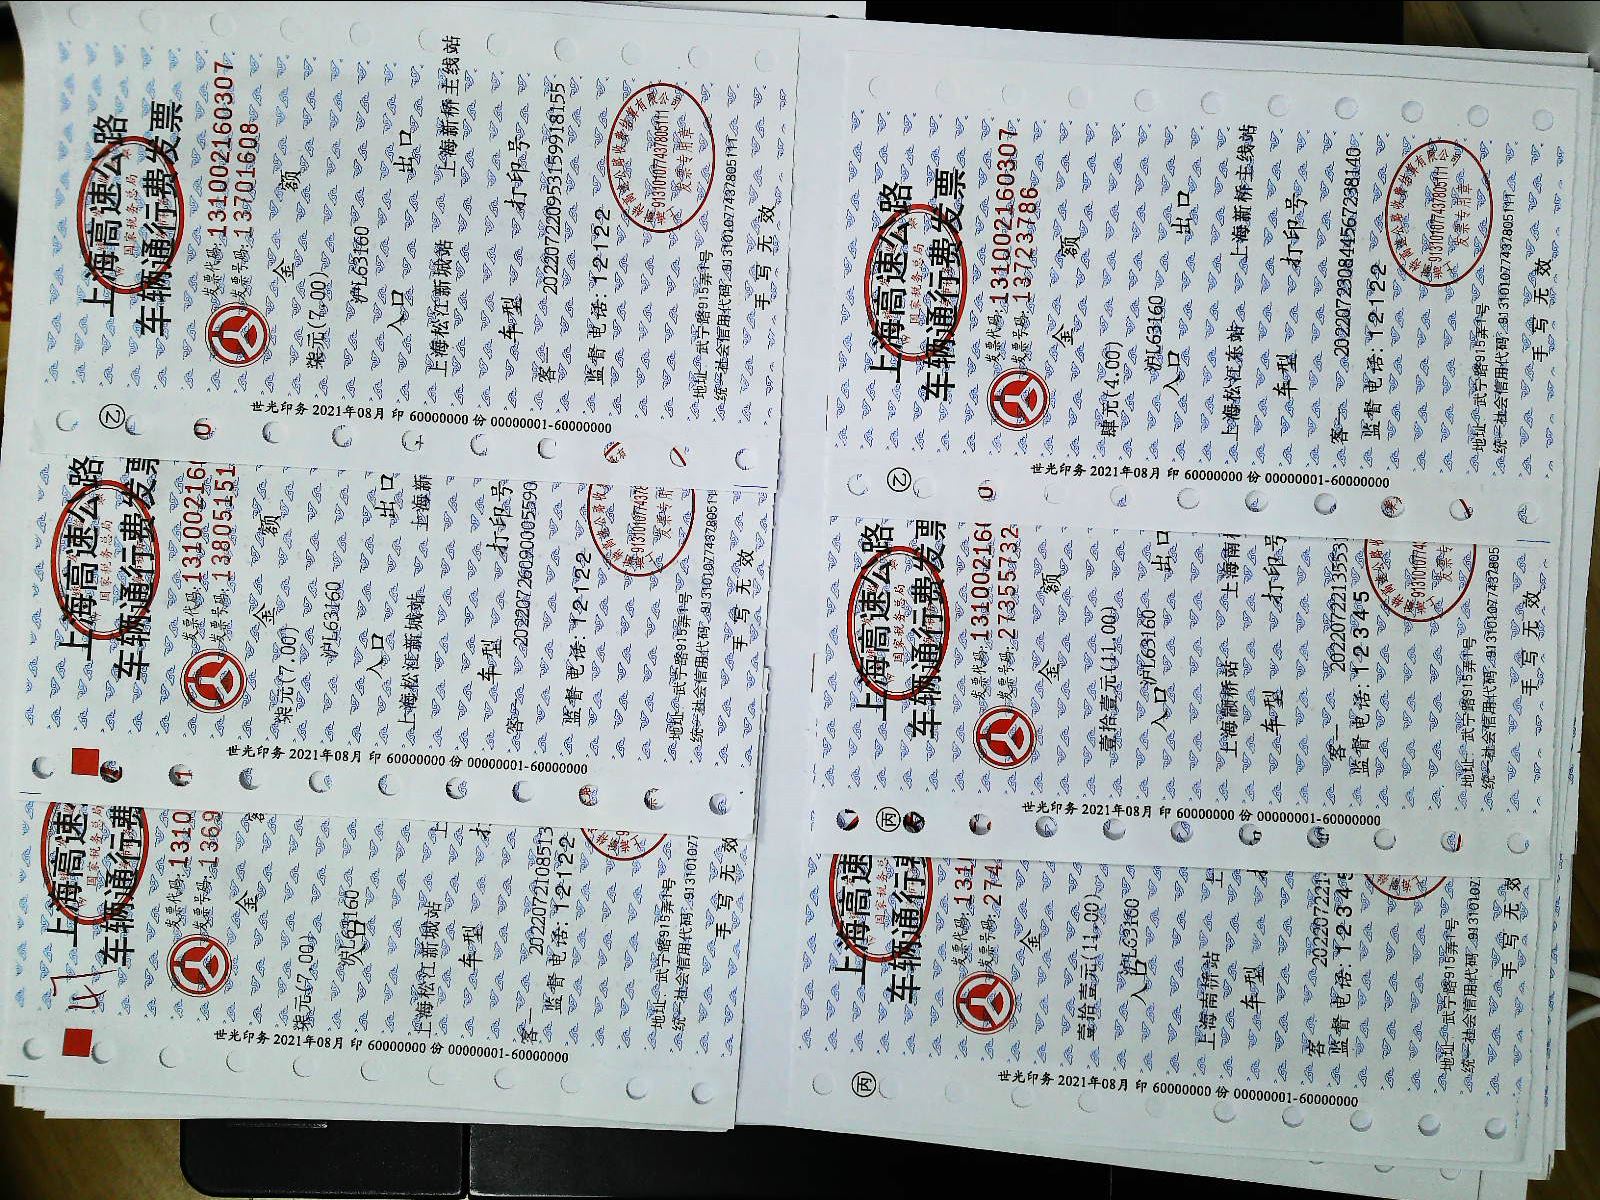 上海高速公路
国家税务总局
车辆通行费发票
发票代码:131002160307
发票号码:13701608
金 额
柒元(7.00)
沪L63160
入口 出口
上海松江新城站 上海新桥主线站
车型 打印号
客一 20220722095315991815​5
监督电话:12122
91310107743780511T
发票专用章
地址:武宁路915弄1号
统一社会信用代码:91310107743780511T
手写无效
世光印务 2021年08月 印 60000000 份 00000001-60000000
上海高速公路
国家税务总局
车辆通行费发票
发票代码:13100216
发票号码:13805151
金 额
柒元(7.00)
沪L63160
入口 出口
上海松江新城站 上海新
车型 打印号
客一 20220726090005590
监督电话:12122
地址:武宁路915弄1号
统一社会信用代码:91310107743780511
手写无效
世光印务 2021年08月 印 60000000 份 00000001-60000000
上海高速
国家税务总局
车辆通行费
发票代码:1310
发票号码:1369
金
柒元(7.00)
沪L63160
入口
上海松江新城站 上
车型 打
客一 2022072108513
监督电话:12122
地址:武宁路915弄1号
统一社会信用代码:91310107
手写无效
世光印务 2021年08月 印 60000000 份 00000001-60000000
上海高速公路
国家税务总局
车辆通行费发票
发票代码:131002160307
发票号码:13723786
金 额
肆元(4.00)
沪L63160
入口 出口
上海松江东站 上海新桥主线站
车型 打印号
客一 202207230844567238140
监督电话:12122
91310107743780511T
发票专用章
地址:武宁路915弄1号
统一社会信用代码:91310107743780511T
手写无效
世光印务 2021年08月 印 60000000 份 00000001-60000000
乙
上海高速公路
国家税务总局
车辆通行费发票
发票代码:13100216
发票号码:27355732
金 额
壹拾壹元(11.00)
沪L63160
入口 出口
上海颛桥站 上海南
车型 打印号
客一 2022072213553
监督电话:12345
地址:武宁路915弄1号
统一社会信用代码:913101077437805
手写无效
世光印务 2021年08月 印 60000000 份 00000001-60000000
丙
上海高速
国家税务总
车辆通行
发票代码:131
发票号码:274
金
壹拾壹元(11.00)
沪L63160
入口
上海南桥站 上
车型
客一 202207221
监督电话:12345
地址:武宁路915弄1号
统一社会信用代码:91310107
手写无效
世光印务 2021年08月 印 60000000 份 00000001-60000000
丙